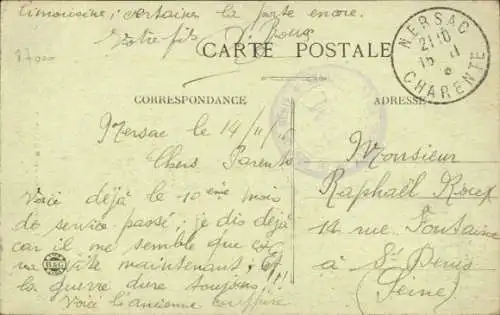 limousine ; certaines la porte encore.
Votre fils
CARTE POSTALE
NERSAC
21 10
15 11
CHARENTE
CORRESPONDANCE
ADRESSE
Nersac le 14/11/
Chers Parents
Voici déjà le 10ème mois
de service passé ; je dis déjà
car il me semble que
va vite maintenant ; Et
la guerre dure toujours !!!
Voici l'ancienne coiffure
Monsieur
Raphaël Roux
14 rue Fontaine
à St Denis
(Seine)